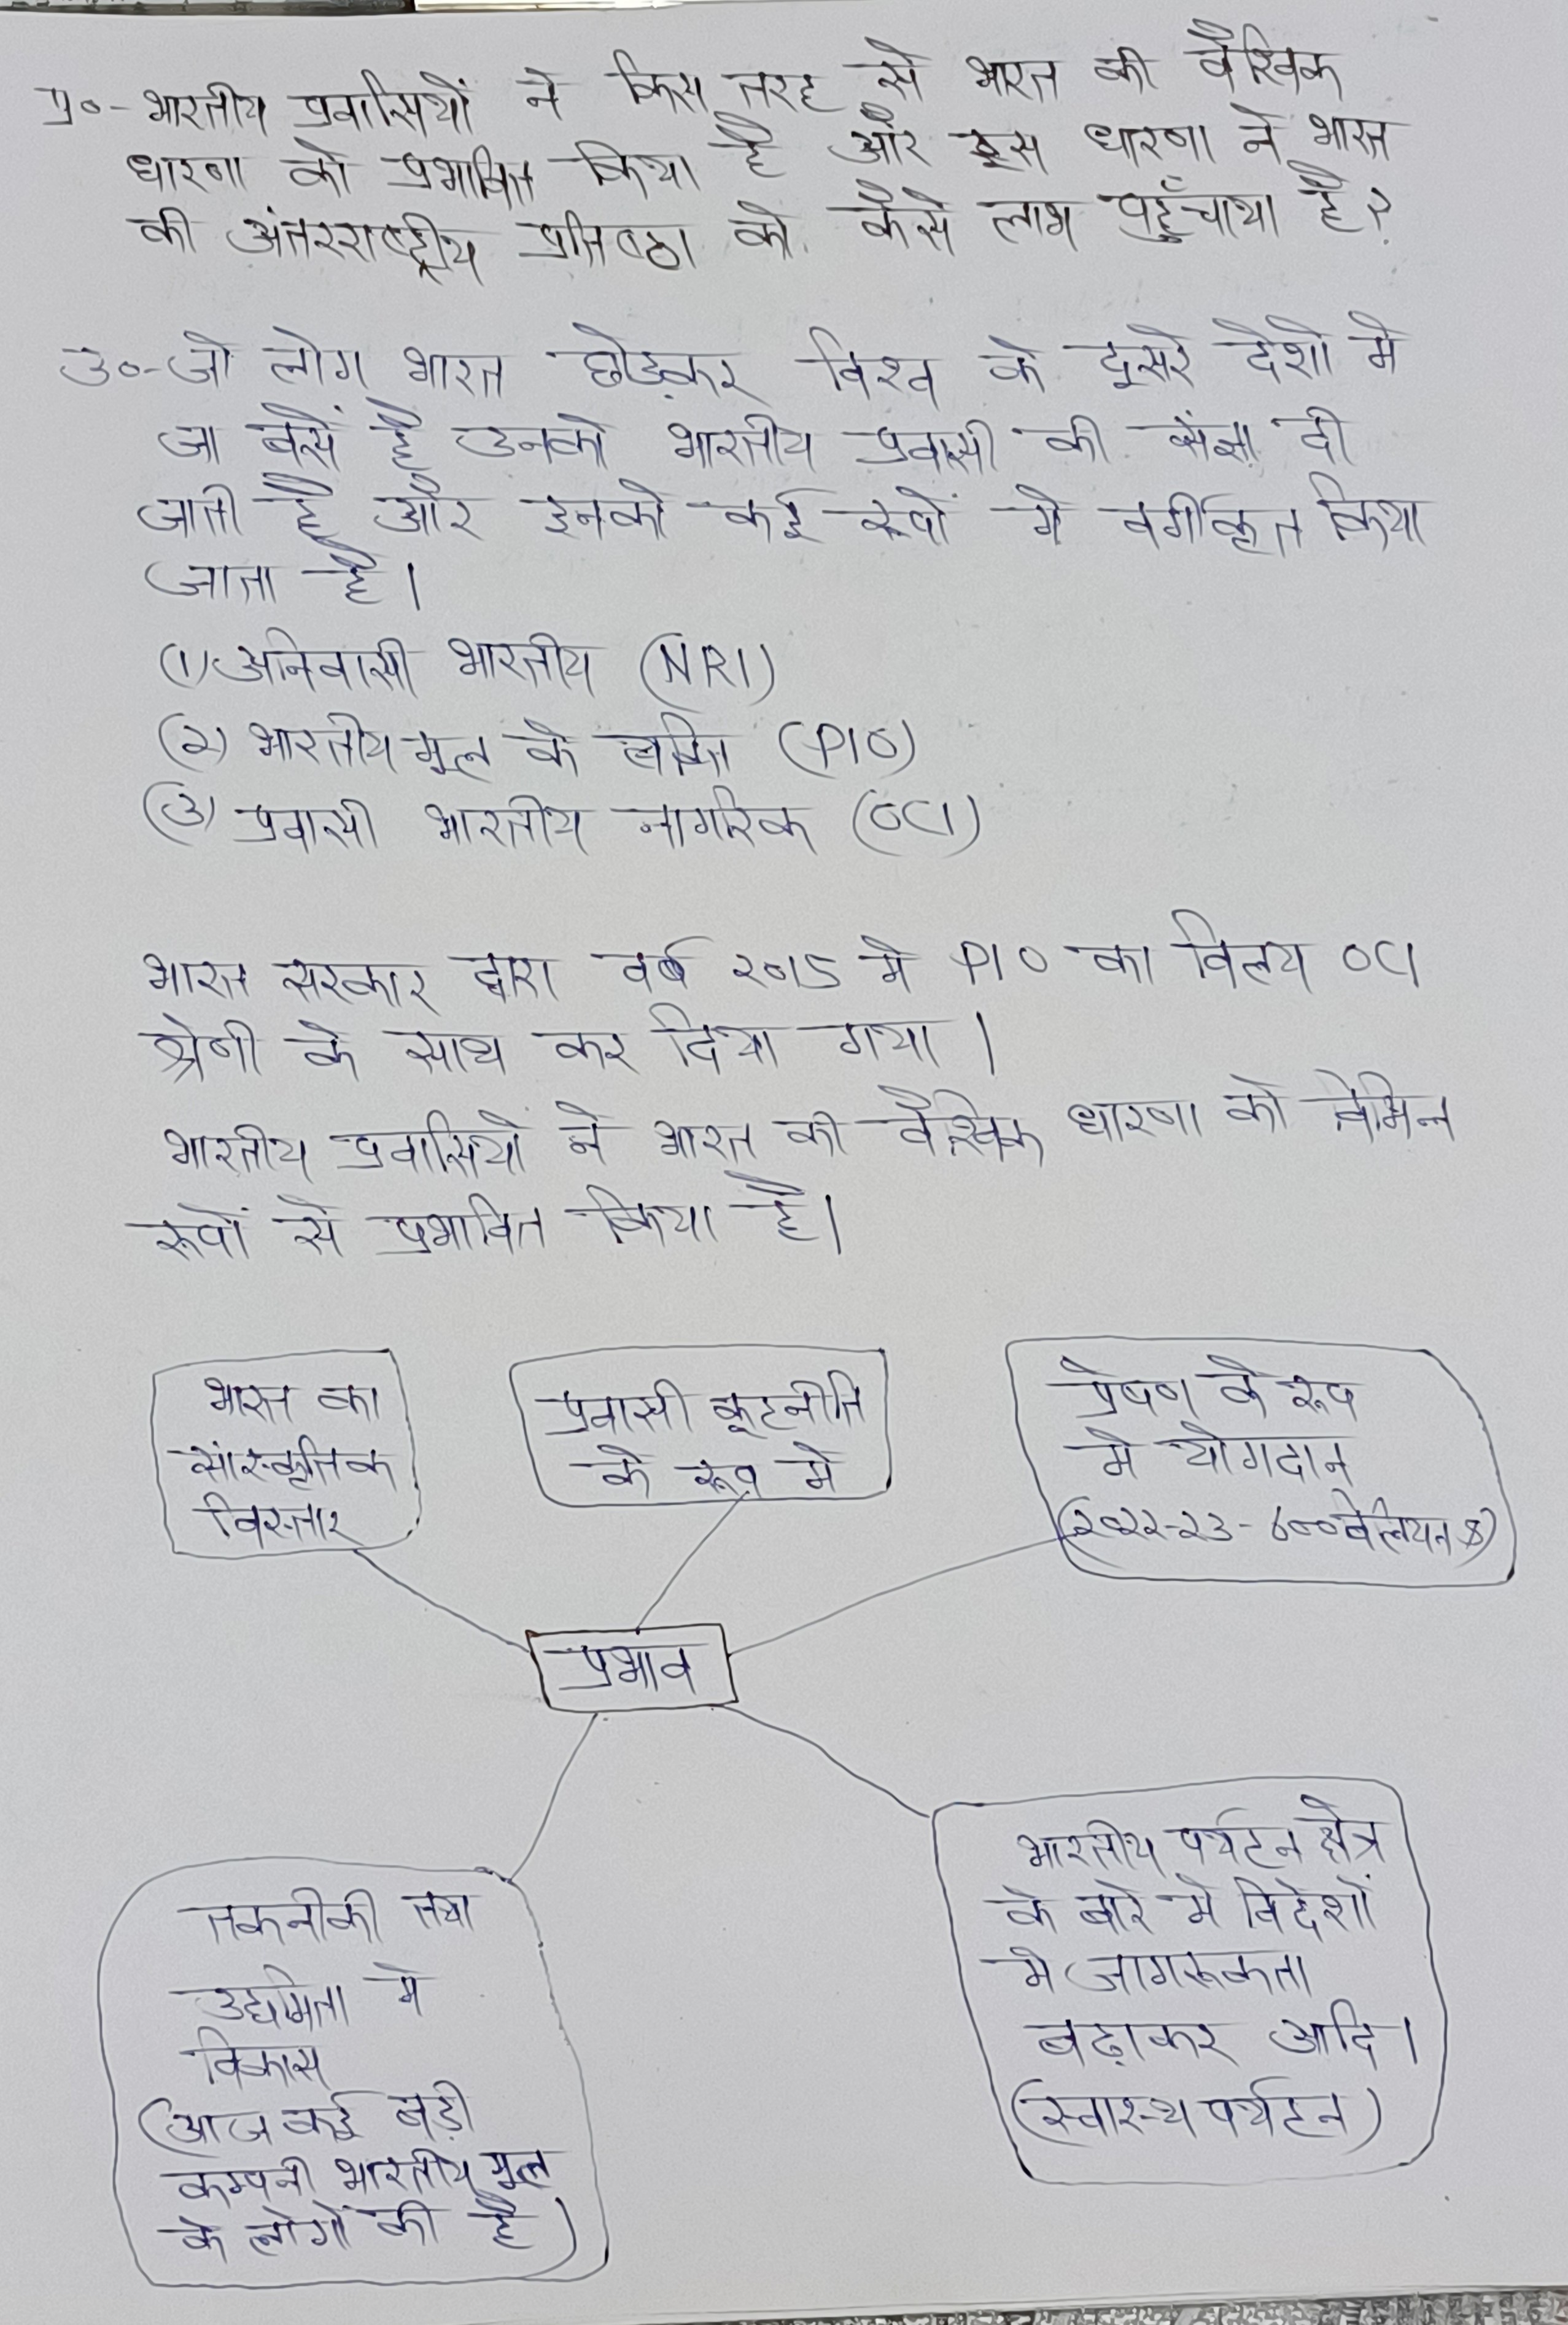 प्र०- भारतीय प्रवासियों ने किस तरह से भारत की वैश्विक
धारणा को प्रभावित किया है और इस धारणा ने भारत
की अंतरराष्ट्रीय प्रतिष्ठा को कैसे लाभ पहुँचाया है?
उ०- जो लोग भारत छोड़कर विश्व के दूसरे देशो मे
जा बसें है उनको भारतीय प्रवासी की संज्ञा दी
जाती है और इनको कई रूपों मे वर्गीकृत किया
जाता है।
(1) अनिवासी भारतीय (NRI)
(2) भारतीय मूल के व्यक्ति (PIO)
(3) प्रवासी भारतीय नागरिक (OCI)
भारत सरकार द्वारा वर्ष 2015 मे PIO का विलय OCI
श्रेणी के साथ कर दिया गया।
भारतीय प्रवासियो ने भारत की वैश्विक धारणा को विभिन्न
रूपों से प्रभावित किया है।
भारत का
सांस्कृतिक
विस्तार
प्रवासी कूटनीति
के रूप मे
प्रेषण के रूप
मे योगदान
(2022-23 - 600 बिलियन $)
प्रभाव
तकनीकी तथा
उद्यमिता मे
विकास
(आज कई बड़ी
कम्पनी भारतीय मूल
के लोगों की है)
भारतीय पर्यटन क्षेत्र
के बारे मे विदेशों
मे जागरूकता
बढ़ाकर आदि।
(स्वास्थ्य पर्यटन)